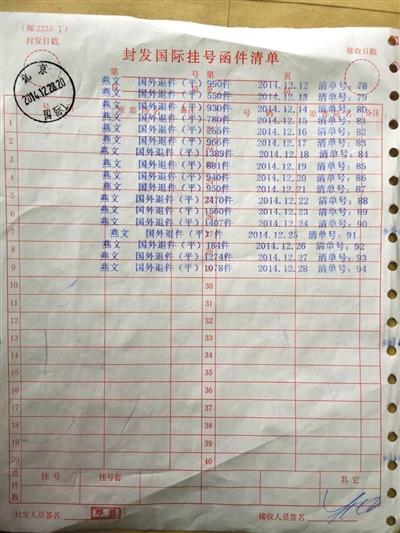 (邮2233丁)
封发日戳
接收日戳
封发国际挂号函件清单
北京
2014.12.28.20
国际
第 号 第 页
燕文 国外退件(平)990件 2014.12.12 清单号:78
燕文 国外退件(平)550件 2014.12.13 清单号:79
燕文 国外退件(平)930件 2014.12.14 清单号:80
燕文 国外退件(平)780件 2014.12.15 清单号:81
燕文 国外退件(平)265件 2014.12.16 清单号:82
燕文 国外退件(平)966件 2014.12.17 清单号:83
燕文 国外退件(平)1389件 2014.12.18 清单号:84
燕文 国外退件(平)881件 2014.12.19 清单号:85
燕文 国外退件(平)940件 2014.12.20 清单号:86
燕文 国外退件(平)950件 2014.12.21 清单号:87
燕文 国外退件(平)2470件 2014.12.22 清单号:88
燕文 国外退件(平)1560件 2014.12.23 清单号:89
燕文 国外退件(平)1407件 2014.12.24 清单号:90
燕文 国外退件(平)7件 2014.12.25 清单号:91
燕文 国外退件(平)184件 2014.12.26 清单号:92
燕文 国外退件(平)1274件 2014.12.27 清单号:93
燕文 国外退件(平)1078件 2014.12.28 清单号:94
10 30
11 31
12 32
13 33
14 34
15 35
16 36
17 37
18 38
19 39
20 40
总件数 挂号 挂号套 其它
封发人员签名 接收人员签名